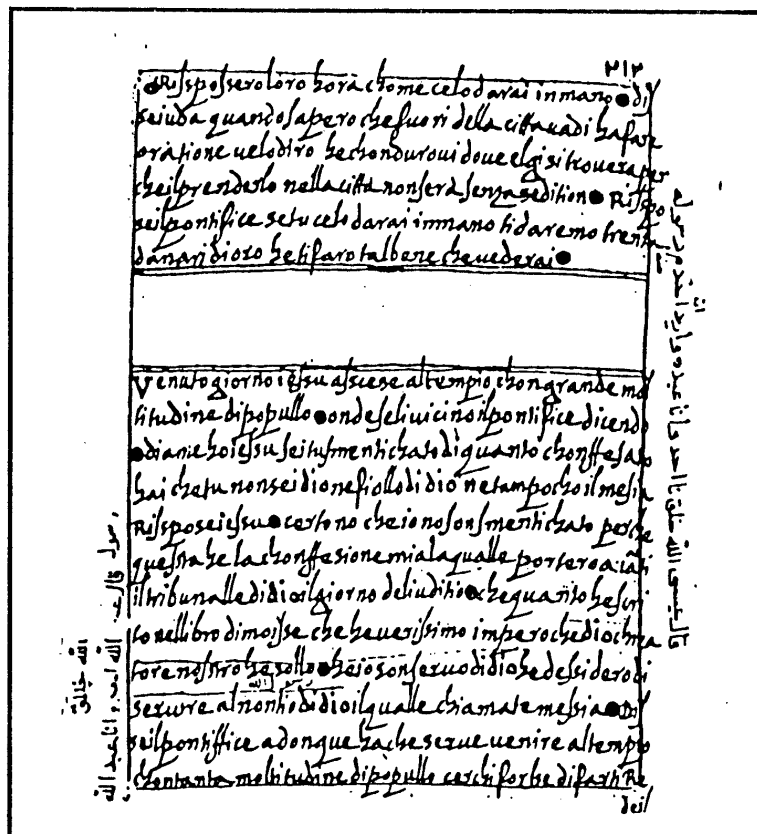 ٢١٢
●Rissposseroloro hora chome celo darai inmano●di
seiuda quando sapero che fuori della citta uadi hafare
oratione uelodiro he chonduroui doue elgi si trouera per
che il prenderlo nella citta non sera senza sedition● Risspo
seilpontifice se tu celo darai inmano ti daremo trenta
danari dioro he tifaro talbene che uederai●
Venuto giorno iessu asscese al tempio chon grande mol
titudine di popullo●onde seli uicino ilpontifice dicendo
●diame ho iessu sei tu smentichato di quanto chonffesato
hai che tu non sei dio ne fiollo di dio ne tampocho il mesia
Risspose iessu●certo no che io no son smentichato perche
quessta he la chonffesione mia la qualle portero auanti
il tribunalle di dio il giorno del iuditio●che quanto he scri
to nel libro di moisse che he uerissimo impero che dio chrea
tore nosstro he sollo●he io son seruo di dio he dessidero di
seruire al nontio di dio il qualle chiamate messia●Dis
se il pontiffice adonque ha che serue uenire al tempio
chon tanta moltitudine di popullo cerchi forse di farti Re
deil
الله خلق